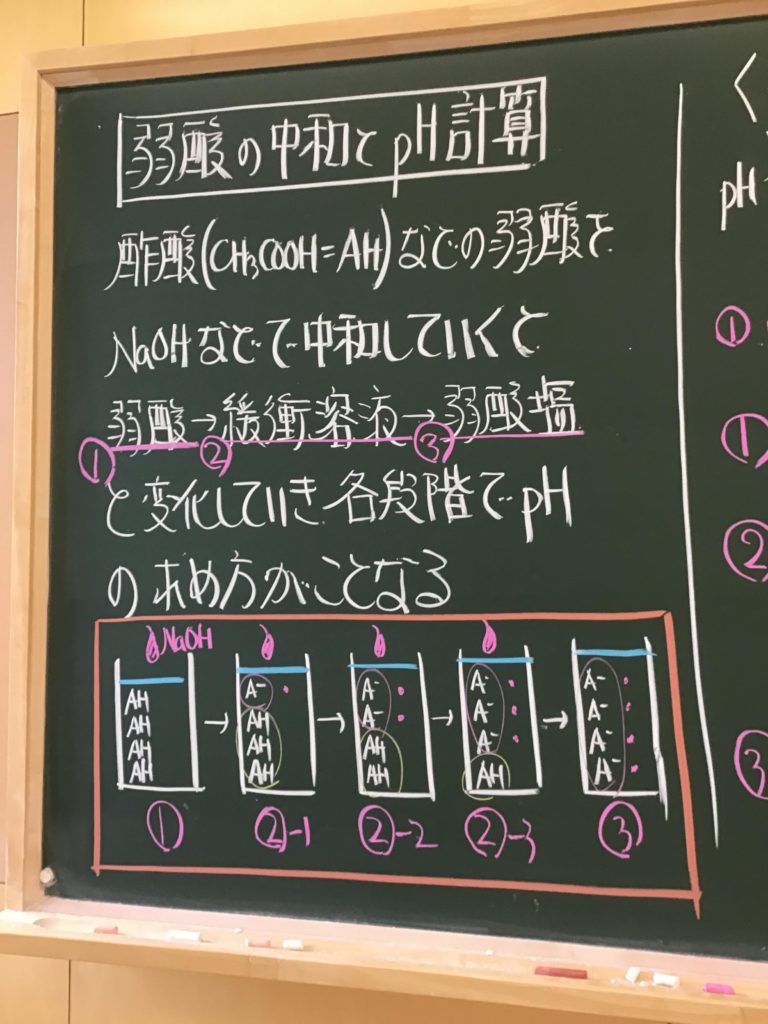 弱酸の中和とpH計算
酢酸(CH₃COOH=AH)などの弱酸を
NaOHなどで中和していくと
弱酸→緩衝溶液→弱酸塩
① ② ③
と変化していき各段階でpH
の求め方がことなる
NaOH
AH A⁻ A⁻ A⁻ A⁻
AH AH A⁻ A⁻ A⁻
AH AH AH A⁻ A⁻
AH AH AH AH A⁻
→ → → →
① ②-1 ②-2 ②-3 ③
く
pH
①
①
②
③